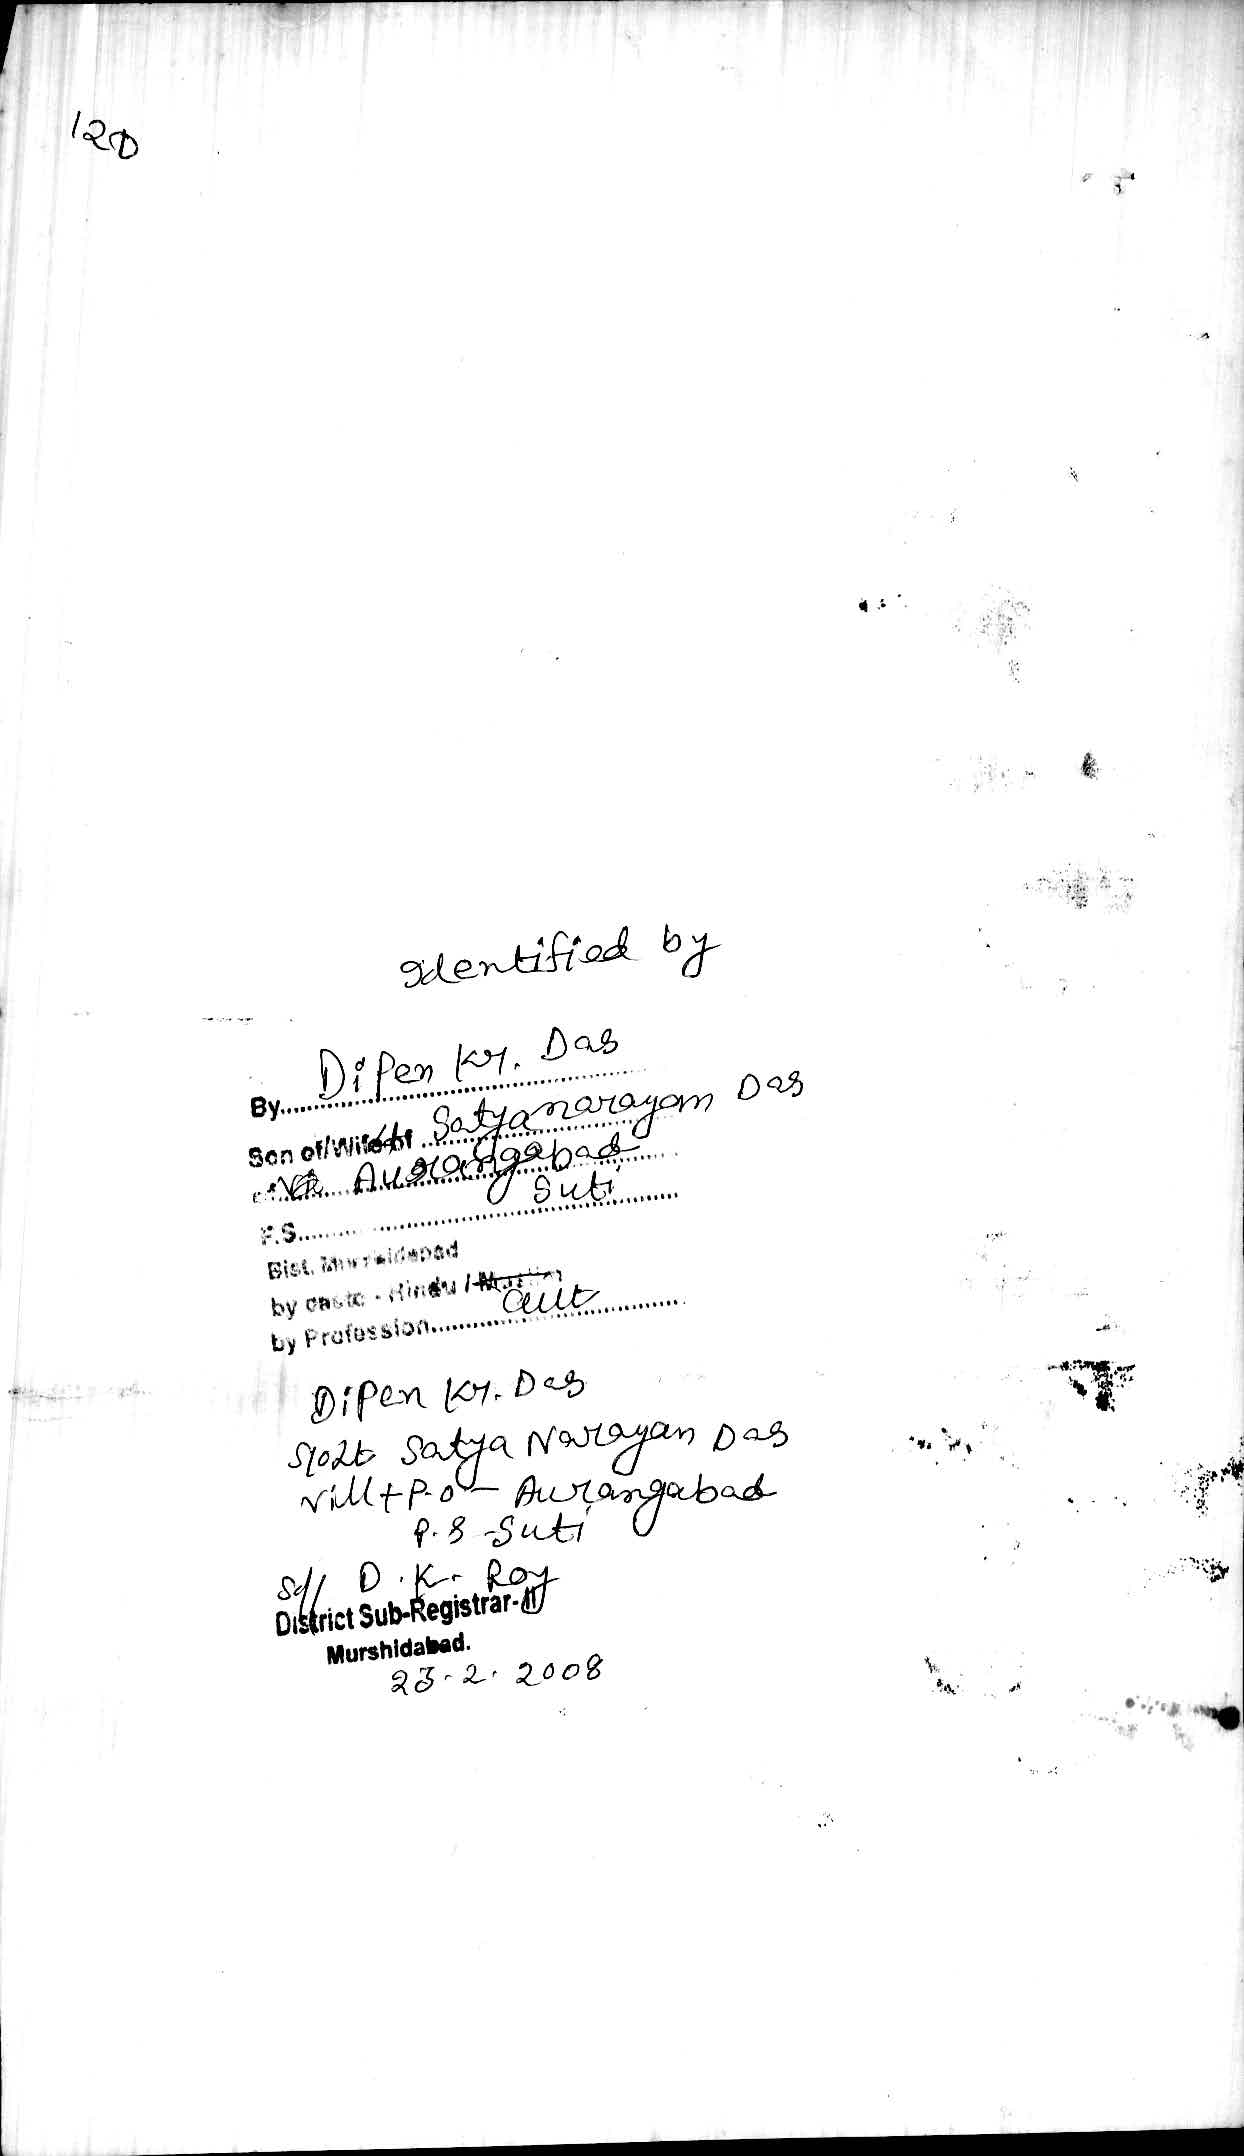 120
Identified by
By Dipen Kr. Das
Son of/Wife of Lt Satyanarayan Das
of Vill Aurangabad
P.S. Suti
Dist. Murshidabad
by caste - Hindu / Muslim
by Profession Cult
Dipen Kr. Das
S/o Lt Satya Narayan Das
Vill + P.O - Aurangabad
P.S - Suti
Sd/ D. K. Roy
District Sub-Registrar-II
Murshidabad.
23.2.2008